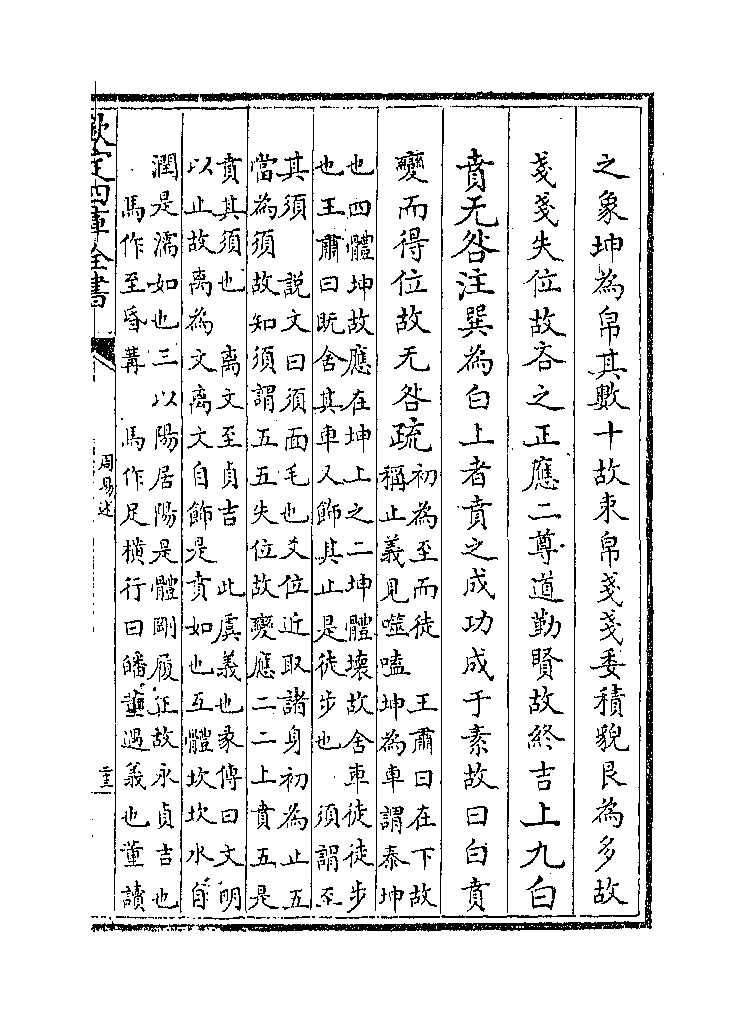 之象坤為帛其數十故束帛戔戔委積貌艮為多故
戔戔失位故吝之正應二尊道勤賢故終吉上九白
賁无咎注巽為白上者賁之成功成于素故曰白賁
變而得位故无咎疏
初為至而徒　王肅曰在下故
稱止義見噬嗑　坤為車謂泰坤
也四體坤故應在坤上之二坤體壊故舍車徒徒步
也王肅曰既舍其車又飾其止是徒步也　須謂至
其須　説文曰須面毛也爻位近取諸身初為止五
當為須故知須謂五五失位故變應二二上賁五是
賁其須也　離文至貞吉　此虞義也彖傳曰文明
以止故離為文離文自飾是賁如也互體坎坎水自
潤是濡如也三以陽居陽是體剛履正故永貞吉也
馬作至昏冓　馬作足横行曰皤董遇義也董讀
欽定四庫全書
周易述